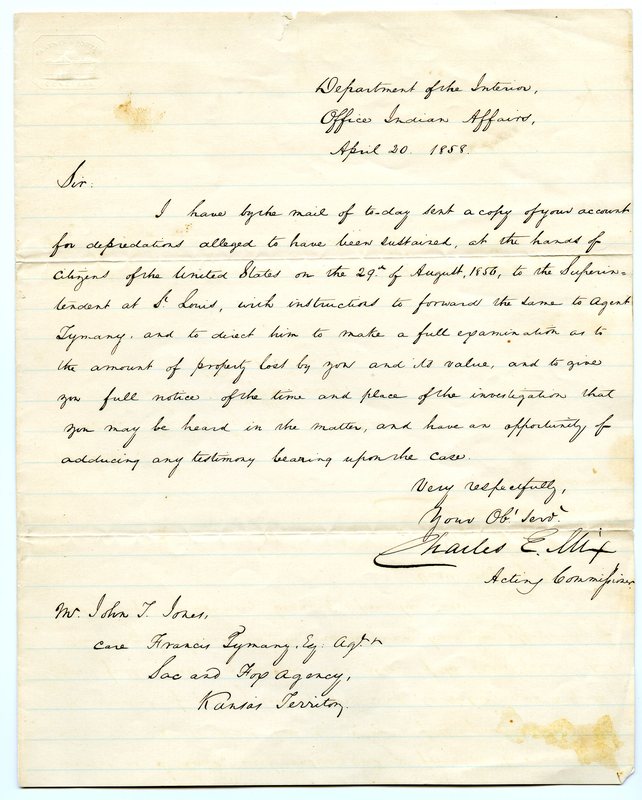 Department of the Interior,
Office Indian Affairs,
April 20. 1858.
Sir:
I have by the mail of to-day sent a copy of your account
for depredations alleged to have been sustained, at the hands of
Citizens of the United States on the 29th of August, 1856, to the Superin=
tendent at St. Louis, with instructions to forward the same to Agent
Tymany. and to direct him to make a full examination as to
the amount of property lost by you and its value, and to give
you full notice of the time and place of the investigation that
you may be heard in the matter, and have an opportunity of
adducing any testimony bearing upon the case.
Very respectfully,
Your Obt Servt.
Charles E. Mix
Acting Commissioner
Mr. John T. Jones,
care Francis Tymany, Esq: Agt. &
Sac and Fox agency,
Kansas Territory.